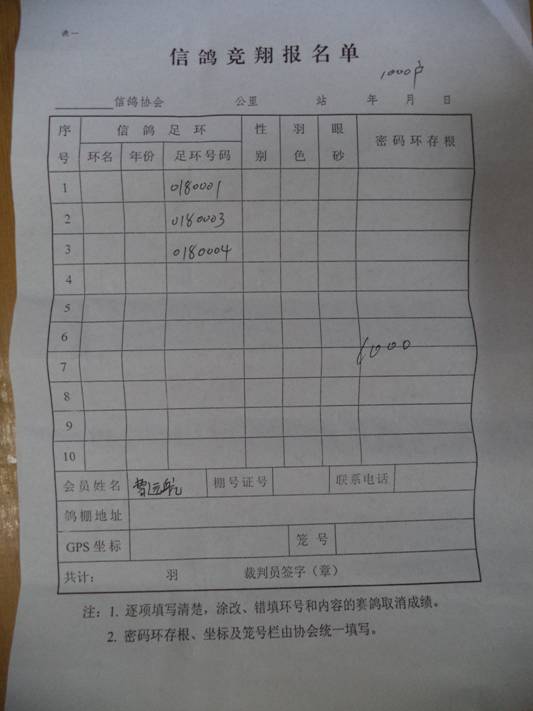 表一
信鸽竞翔报名单
1000户
________信鸽协会 公里 站 年 月 日
序号 信鸽足环 性别 羽色 眼砂 密码环存根
环名 年份 足环号码
1 0180001
2 0180003
3 0180004
4
5
6
7 1000
8
9
10
会员姓名 棚号证号 联系电话
鸽棚地址
GPS坐标 笼号
共计： 羽 裁判员签字（章）
注：1. 逐项填写清楚，涂改、错填环号和内容的赛鸽取消成绩。
2. 密码环存根、坐标及笼号栏由协会统一填写。